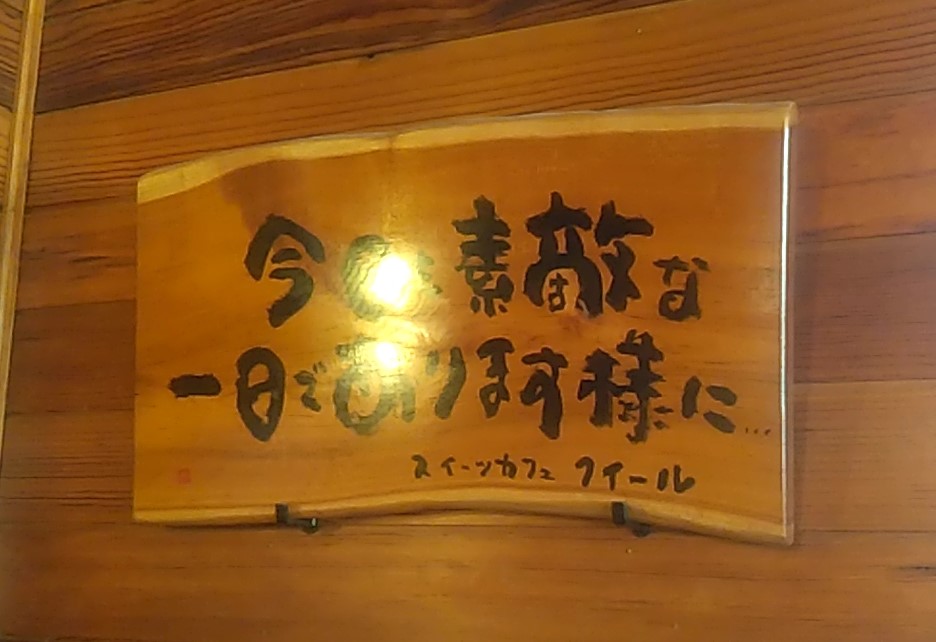 今日も素敵な
一日であります様に...
スイーツカフェ クイール